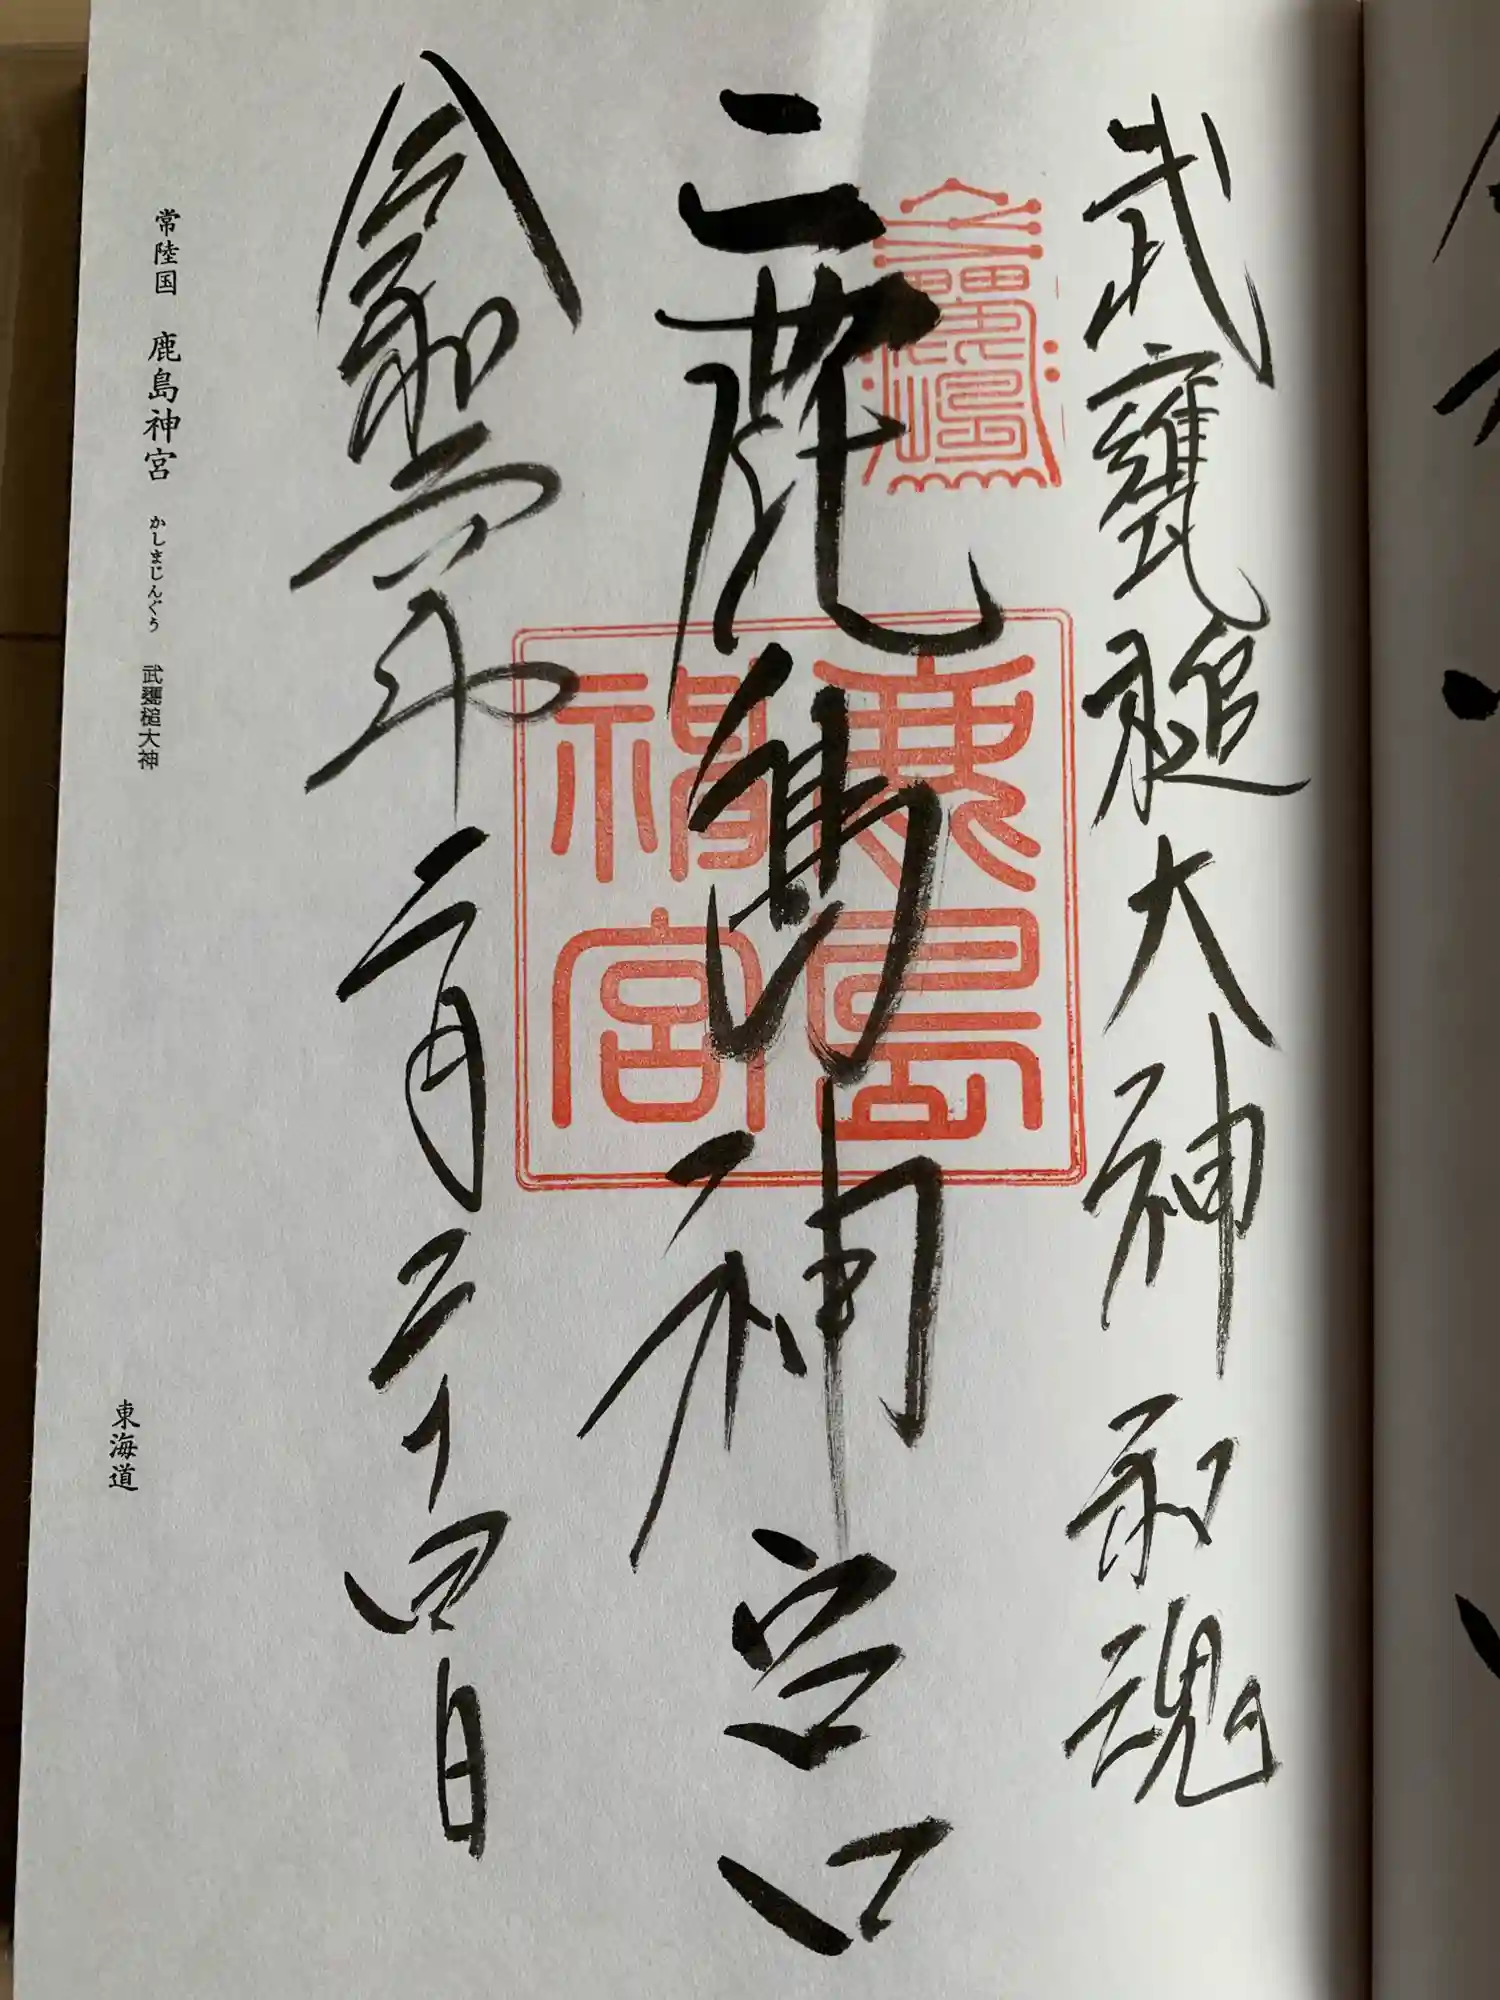 武甕槌大神和魂
鹿島神宮
鹿島神宮
二月二十四日
常陸国 鹿島神宮 かしまじんぐう 武甕槌大神
東海道